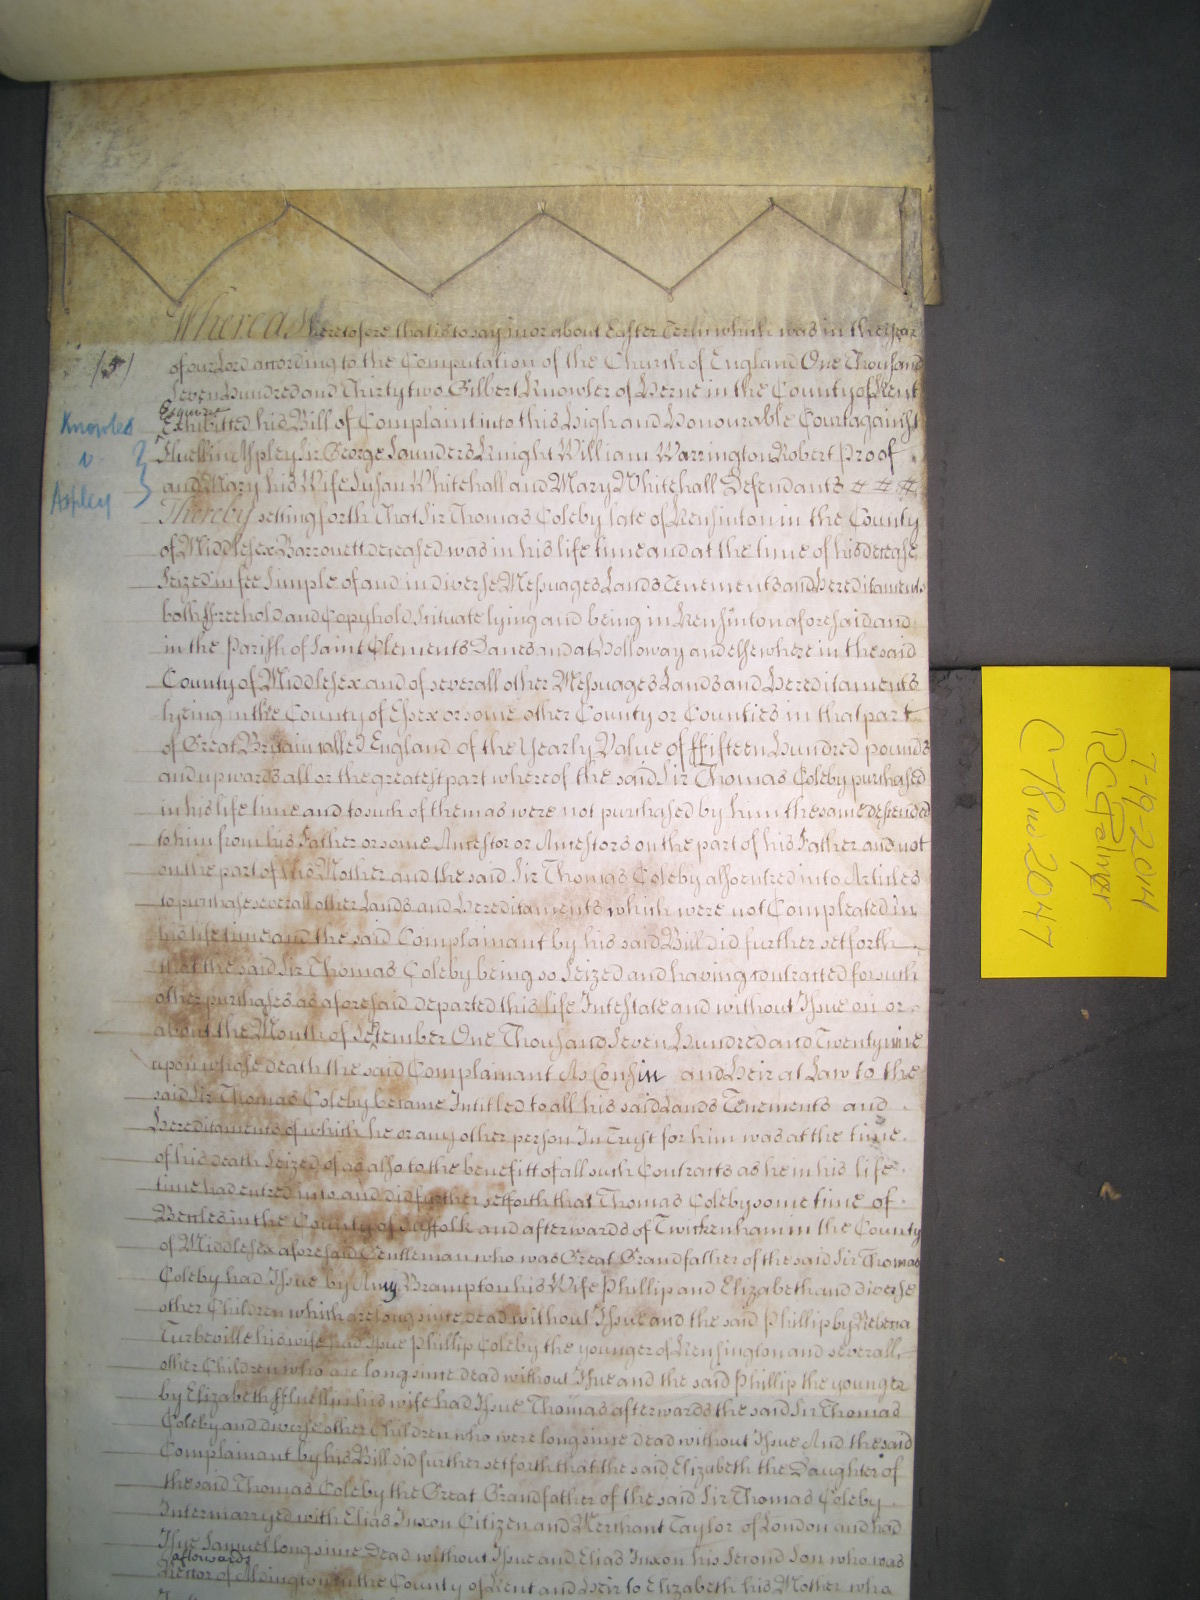 Whereas heretofore that is to say in or about Easter Term which was in the year
(5)
of our Lord according to the Computation of the Church of England One Thousand
Seven Hundred and Thirty two Gilbert Knowler of Herne in the County of Kent
Esquire
Exhibited his Bill of Complaint into this High and Honourable Court against
Knowler
v.
Aspley
Fluellin Apsley Sir George Saunders Knight William Warrington Robert Proof
and Mary his Wife Susan Whitehall and Mary Whitehall Defendants
Thereby setting forth That Sir Thomas Coleby late of Kensinton in the County
of Middlesex Barronett deceased was in his life time and at the time of his decease
Seized in fee Simple of and in diverse Messuages Lands Tenements and Hereditaments
both ffreehold and Copyhold Situate lying and being in Kensinton aforesaid and
in the Parish of Saint Clements Danes and at Holloway and elsewhere in the said
County of Middlesex and of severall other Messuages Lands and Hereditaments
lyeing in the County of Essex or some other County or Counties in that part
of Great Britain called England of the Yearly Value of ffifteen Hundred pounds
and upwards all or the greatest part whereof the said Sir Thomas Coleby purchased
in his life time and to such of them as were not purchased by him the same descended
to him from his Father or some Ancestor or Ancestors on the part of his Father and not
on the part of his Mother and the said Sir Thomas Coleby also entred into Articles
to purchase severall other Lands and Hereditaments which were not Compleated in
his life time and the said Complainant by his said Bill did further set forth
that the said Sir Thomas Coleby being so Seized and having contracted for such
other purchases as aforesaid departed this life Intestate and without Issue on or
about the Month of September One Thousand Seven Hundred and Twenty nine
upon whose death the said Complainant As Consin and Heir at Law to the
said Sir Thomas Coleby became Intitled to all his said Lands Tenements and
Hereditaments of which he or any other person In Trust for him was at the time
of his death Seized of as also to the benefitt of all such Contracts as he in his life
time had entred into and did further set forth that Thomas Coleby some time of
Beccles in the County of Suffolk and afterwards of Twickenham in the County
of Middlesex aforesaid Gentleman who was Great Grandfather of the said Sir Thomas
Coleby had Issue by Amy Brampton his Wife Phillip and Elizabeth and diverse
other Children which are long since dead without Issue and the said Phillip by Rebecca
Turbeville his wife had Issue Phillip Coleby the younger of Kensington and severall
other Children who are long since dead without Issue and the said Phillip the younger
by Elizabeth ffluellin his wife had Issue Thomas afterwards the said Sir Thomas
Coleby and diverse other Children who were long since dead without Issue And the said
Complainant by his Bill did further set forth that the said Elizabeth the Daughter of
the said Thomas Coleby the Great Grandfather of the said Sir Thomas Coleby
Intermarryed with Elias Juxon Citizen and Merchant Taylor of London and had
Issue Samuel long since Dead without Issue and Elias Juxon his Second Son who was
afterwards
Rector of Aldington in the County of Kent and Heir to Elizabeth his Mother who
7-10-2014
RCPalmer
C78 no. 2047